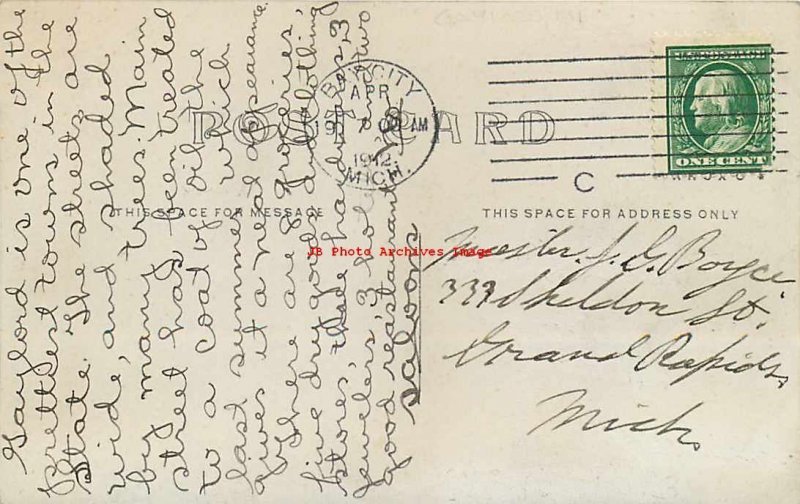 Gaylord is one of the
prettyest towns in the
State. The streets are
wide, and shaded
by many trees. Main
street has been treated
to a coat of oil the
last summer which
gives it a neat appearance
There are 5 groceries,
five dry goods and clothing
stores, three hardwares, 3
jewelers, 3 and two
good reastaurant
saloons
POST CARD
BAY CITY
APR
19
7 AM
1912
MICH.
C
ONE CENT
THIS SPACE FOR MESSAGE
THIS SPACE FOR ADDRESS ONLY
JB Photo Archives Image
Mester. J. G. Boyce
339 Sheldon St.
Grand Rapids,
Mich.